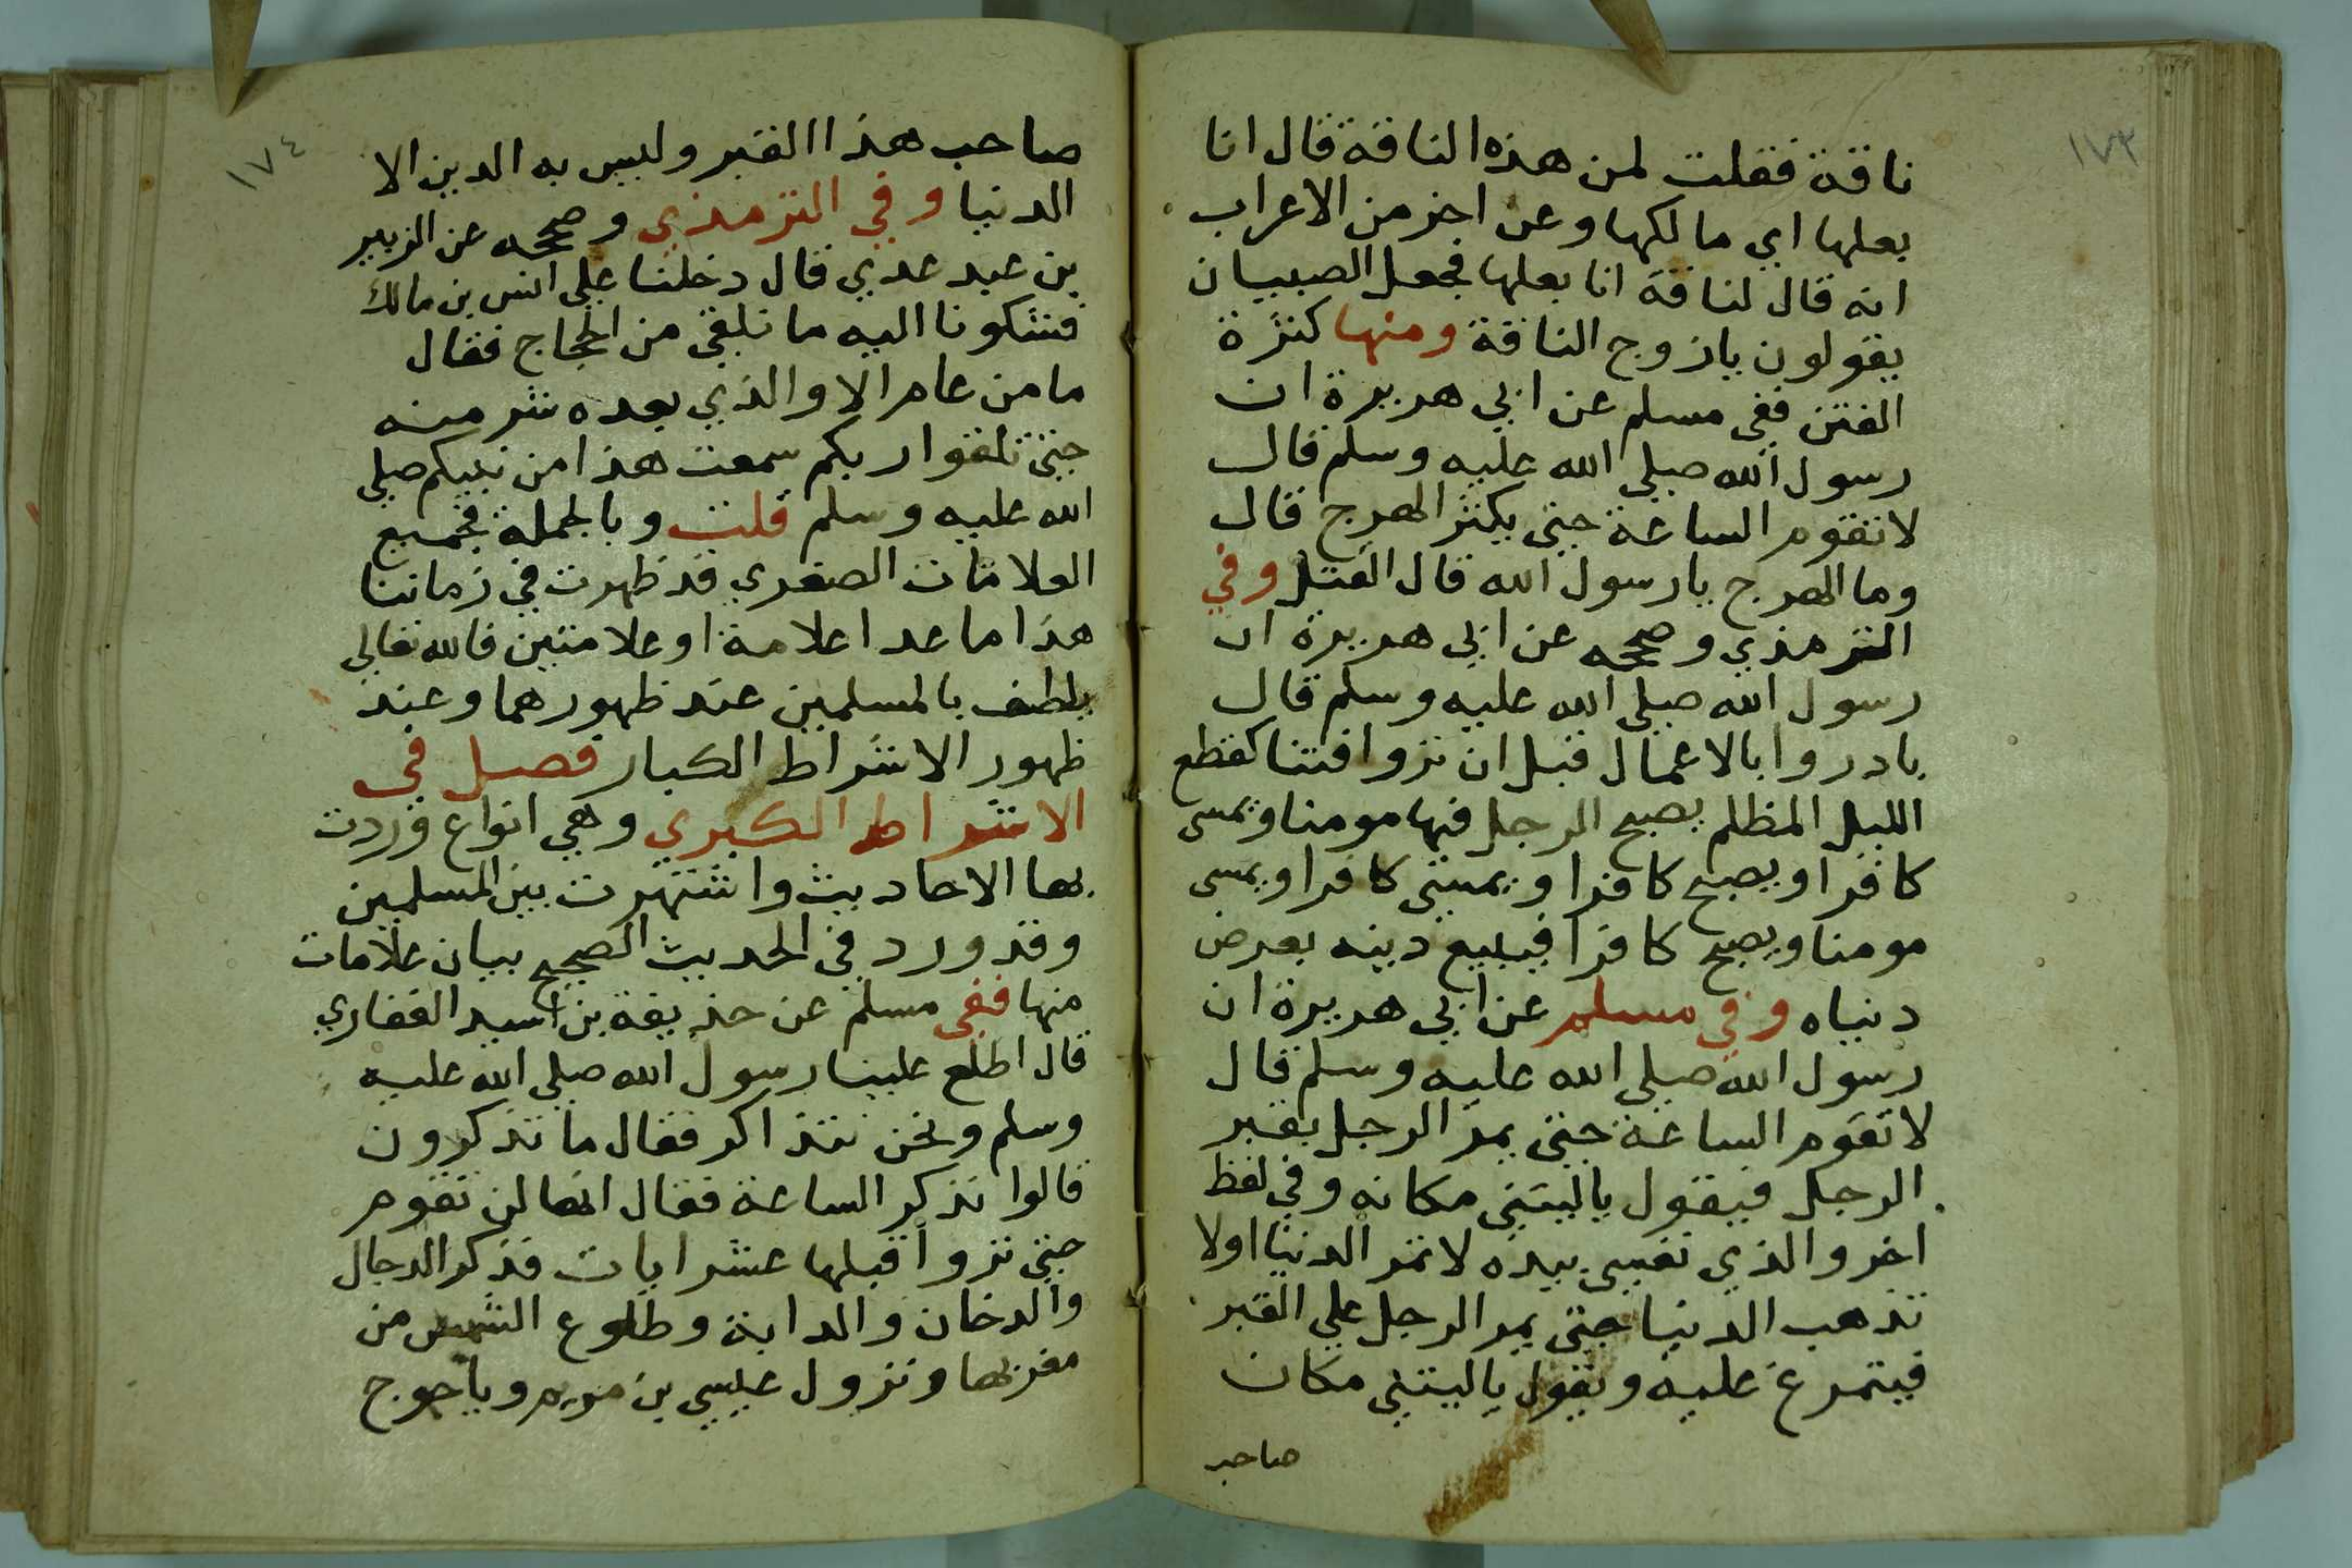 ١٧٣
ناقة فقلت لمن هذه الناقة قال انا
بعلها اي مالكها وعن اخر من الاعراب
انه قال لناقة انا بعلها فجعل الصبيان
يقولون يا زوج الناقة ومنها كثرة
الفتن ففي مسلم عن ابي هريرة ان
رسول الله صلي الله عليه وسلم قال
لا تقوم الساعة حتى يكثر الهرج قال
وما الهرج يا رسول الله قال القتل وفي
الترمذي وصححه عن ابي هريرة ان
رسول الله صلي الله عليه وسلم قال
بادروا بالاعمال قبل ان تروا فتنا كقطع
الليل المظلم يصبح الرجل فيها مومنا ويمسى
كافرا ويصبح كافرا ويمسى كافرا ويمسى
مومنا ويصبح كافرا فيبيع دينه بعرض
دنياه وفي مسلم عن ابي هريرة ان
رسول الله صلي الله عليه وسلم قال
لا تقوم الساعة حتى يمر الرجل بقبر
الرجل فيقول يا ليتني مكانه وفي لفظ
اخر والذي نفسي بيده لا تمر الدنيا اولا
تذهب الدنيا حتى يمر الرجل علي القبر
فيتمرغ عليه ويقول يا ليتني مكان
صاحب
١٧٤
صاحب هذا القبر وليس به الدين الا
الدنيا وفي الترمذي وصححه عن الزبير
بن عبد عدي قال دخلنا علي انس بن مالك
فشكونا اليه ما نلقي من الحجاج فقال
ما من عام الا والذي بعده شر منه
حتى تلقوا ربكم سمعت هذا من نبيكم صلي
الله عليه وسلم قلت وبالجملة فجميع
العلامات الصغري قد ظهرت في زماننا
هذا ما عدا علامة او علامتين فالله تعالي
يلطف بالمسلمين عند ظهورهما وعند
ظهور الاشراط الكبار فصل في
الاشراط الكبري وهي انواع وردت
بها الاحاديث واشتهرت بين المسلمين
وقد ورد في الحديث الصحيح بيان علامات
منها ففي مسلم عن حذيفة بن اسيد الغفاري
قال اطلع علينا رسول الله صلي الله عليه
وسلم ونحن نتذاكر فقال ما تذكرون
قالوا نذكر الساعة فقال انها لن تقوم
حتى تروا قبلها عشر ايات فذكر الدجال
والدخان والدابة وطلوع الشمس من
مغربها ونزول عيسي بن مريم وياجوج